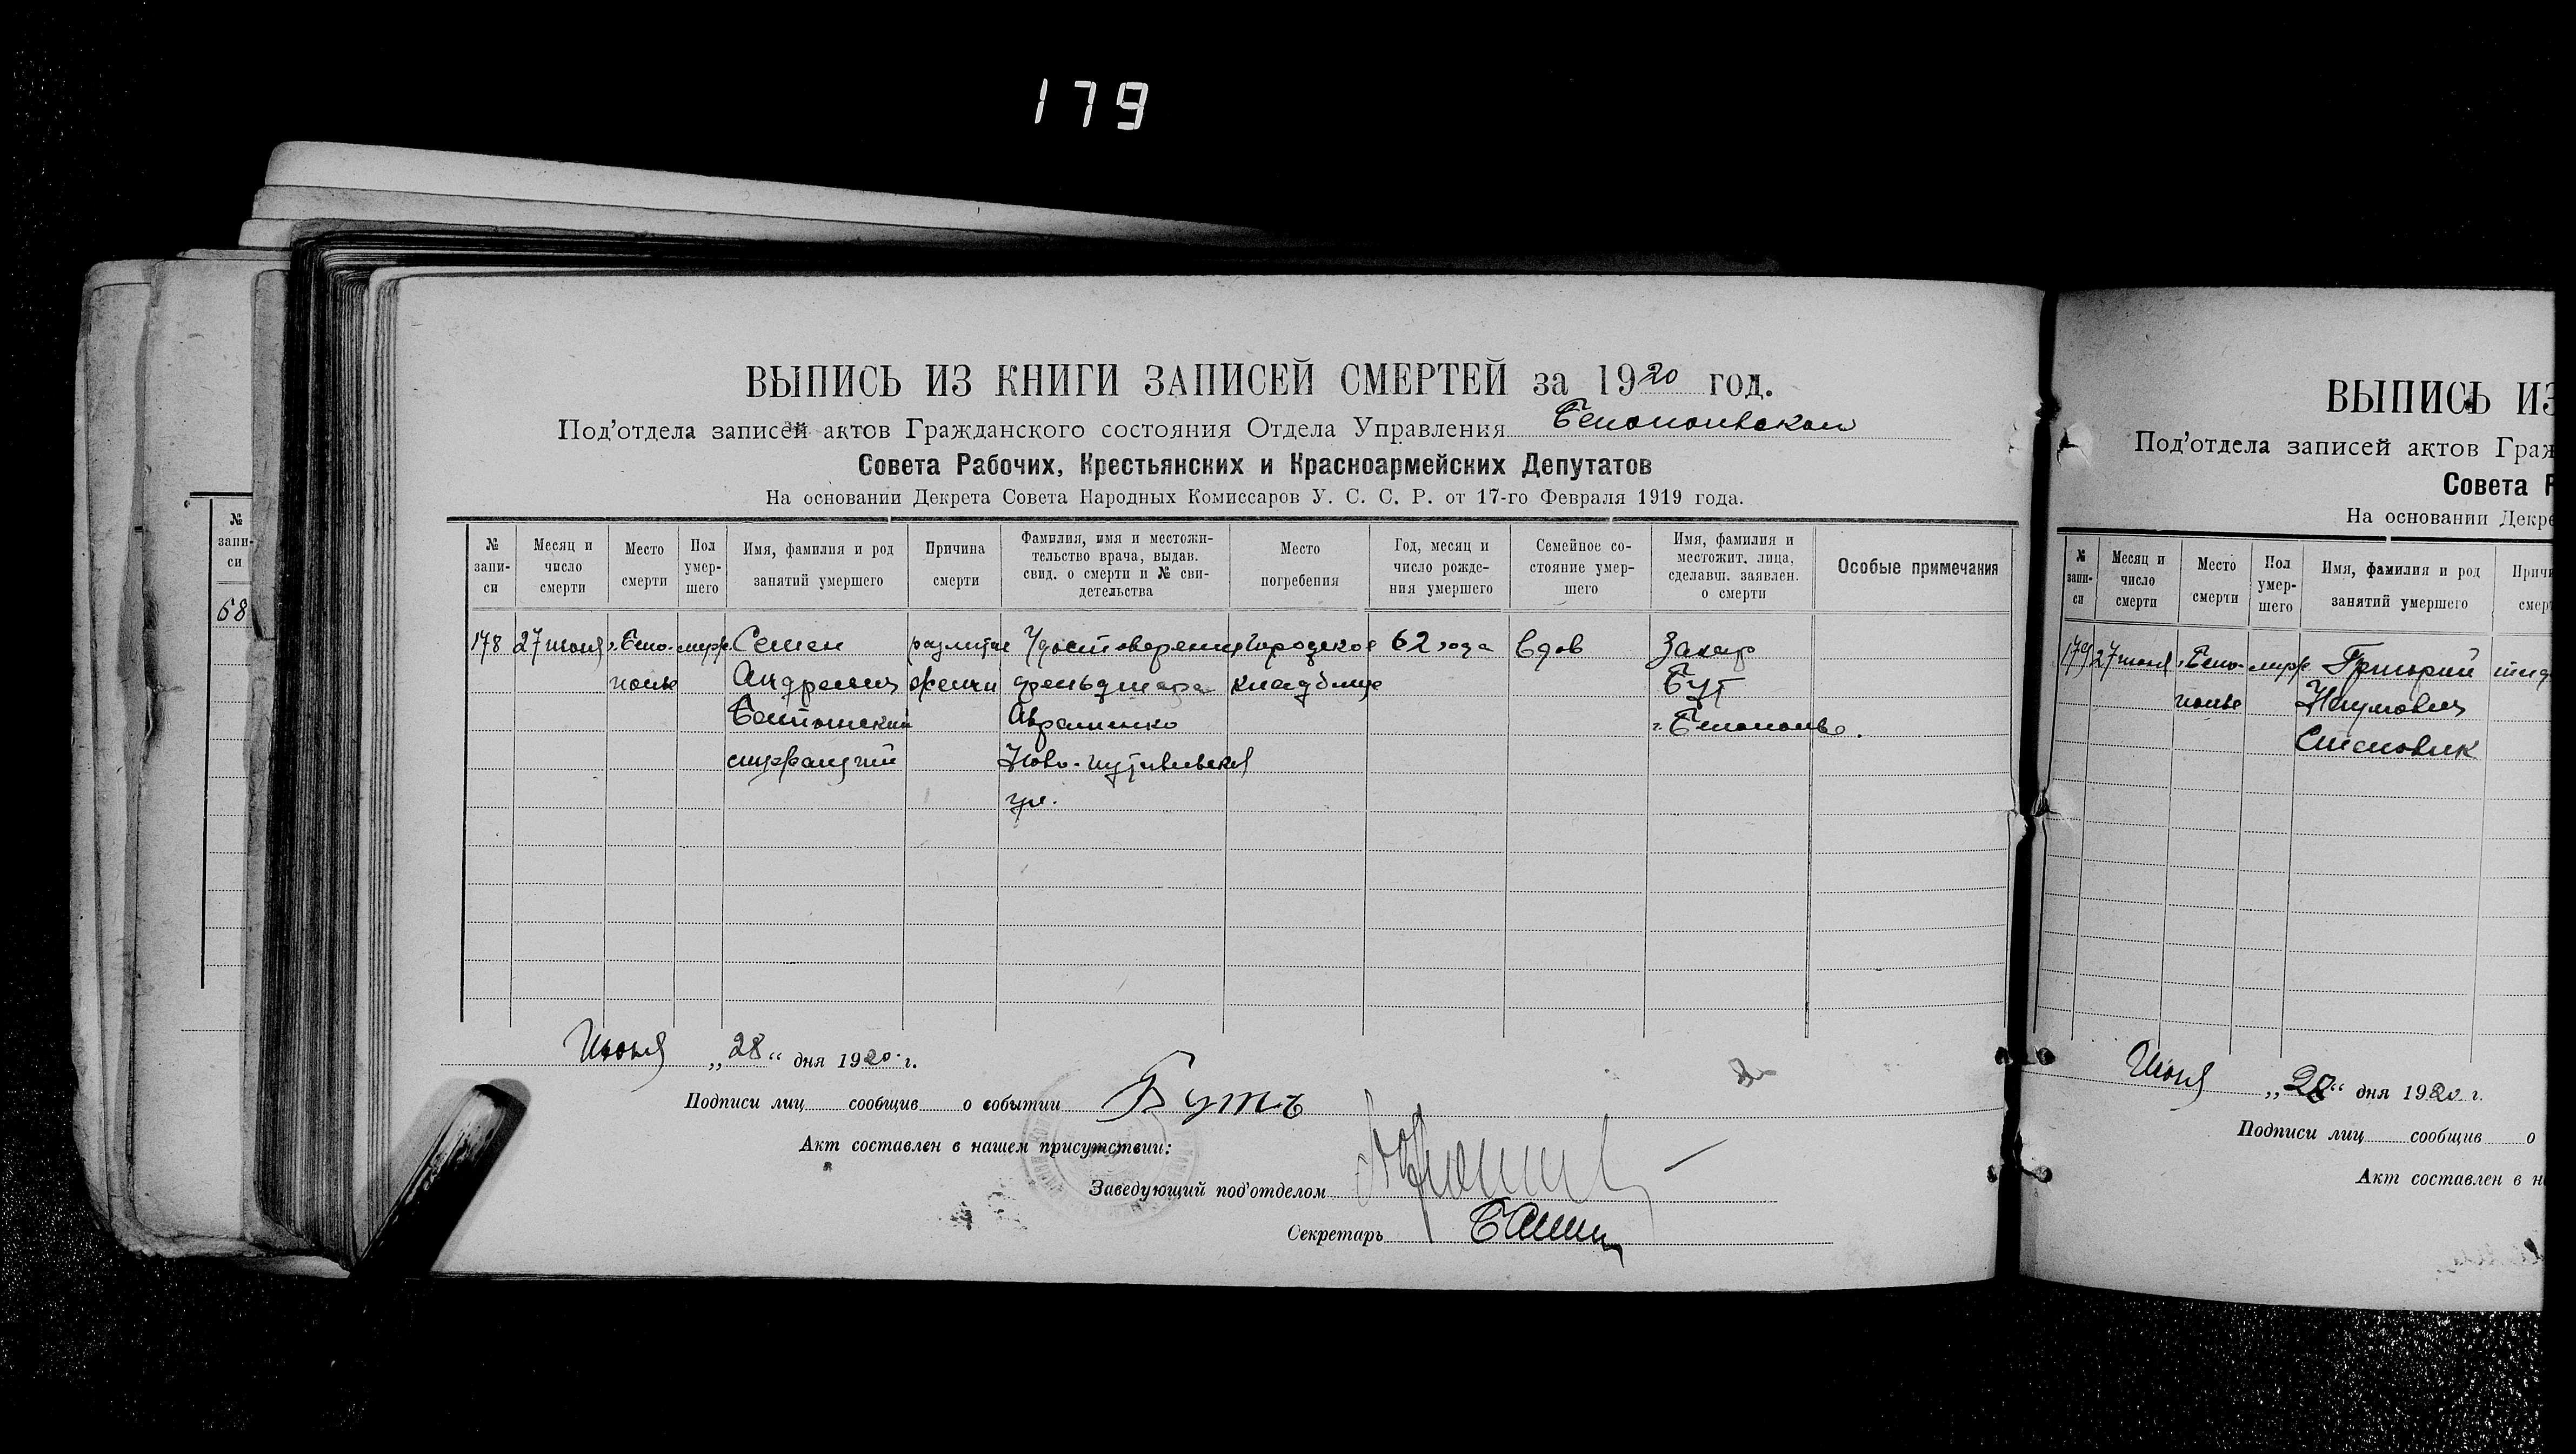 179
ВЫПИСЬ ИЗ КНИГИ ЗАПИСЕЙ СМЕРТЕЙ за 1920 год.
Под'отдела записей актов Гражданского состояния Отдела Управления
Совета Рабочих, Крестьянских и Красноармейских Депутатов
На основании Декрета Совета Народных Комиссаров У. С. С. Р. от 17-го Февраля 1919 года.
№ запи-си
Месяц и число смерти
Место смерти
Пол умер-шего
Имя, фамилия и род занятий умершего
Причина смерти
Фамилия, имя и местожи-тельство врача, выдав. свид. о смерти и № сви-детельства
Место погребения
Год, месяц и число рожде-ния умершего
Семейное со-стояние умер-шего
Имя, фамилия и местожит. лица, сделавш. заявлен. о смерти
Особые примечания
178 27 июня г. Бело- муж. Семен разлитие Удостоверение Городское 62 года вдов Захар
полье Андреевич желчи фельдшера кладбище Бут
Авраменко г. Белополье.
Ново-Путивльская
ул.
Июня „28“ дня 1920 г.
Подписи лиц сообщив о событии Бутъ
Акт составлен в нашем присутствии:
Заведующий под'отделом
Секретарь
№ запи-си
68
ВЫПИСЬ ИЗ
Под'отдела записей актов Граж
Совета Р
На основании Декре
№ запи-си
Месяц и число смерти
Место смерти
Пол умер-шего
Имя, фамилия и род занятий умершего
Причи
смерт
179 27 июня г. Бело- муж. Григорий
полье Наумович
Июня „28“ дня 1920 г.
Подписи лиц сообщив о
Акт составлен в н